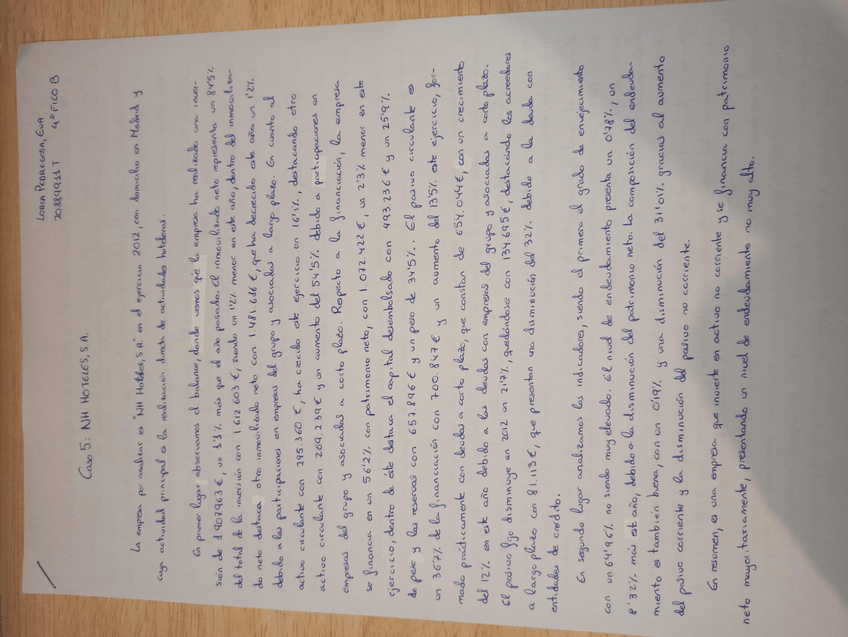 LORCA PEDREGOSA, EVA
20889911T 4º FICO B
CASO 5: NH HOTELES, S.A.
La empresa por analizar es "NH Hoteles, S.A" en el ejercicio 2012, con domicilio en Madrid y
cuya actividad principal es la realización directa de actividades hoteleras.
En primer lugar observamos el balance, donde vemos que la empresa ha realizado una inver-
sión de 1.907.963 €, un 1'3% más que el año pasado. El inmovilizado neto representa un 84'5%
del total de la inversión con 1.612.603 €, siendo un 1'2% menor en este año, dentro del inmoviliza-
do neto destaca otro inmovilizado neto con 1.481.616 €, que ha decrecido este año un 1'2%
debido a las participaciones en empresas del grupo y asociadas a largo plazo. En cuanto al
activo circulante con 295.360 €, ha crecido este ejercicio un 16'1%, destacando otro
activo circulante con 269.239 € y un aumento del 54'5% debido a participaciones en
empresas del grupo y asociadas a corto plazo. Respecto a la financiación, la empresa
se financia en un 56'2% con patrimonio neto, con 1.072.422 €, un 2'3% menor en este
ejercicio, dentro de éste destaca el capital desembolsado con 493.236 € y un 25'9%
de peso y las reservas con 657.896 € y un peso de 34'5%. El pasivo circulante es
un 36'7% de la financiación con 700.847 € y un aumento del 13'5% este ejercicio, for-
mado prácticamente con deudas a corto plazo, que constan de 654.044 €, con un crecimiento
del 12% en este año debido a las deudas con empresas del grupo y asociadas a corto plazo.
El pasivo fijo disminuye en 2012 un 21'7%, quedándose con 134.695 €, destacando los acreedores
a largo plazo con 81.113 €, que presentan una disminución del 32% debido a la deuda con
entidades de crédito.
En segundo lugar analizamos los indicadores, siendo el primero el grado de envejecimiento
con un 64'96% no siendo muy elevado. El nivel de endeudamiento presenta un 0'78%, un
8'32% más este año, debido a la disminución del patrimonio neto. La composición del endeuda-
miento es también buena, con un 0'19% y una disminución del 31'01% gracias al aumento
del pasivo corriente y la disminución del pasivo no corriente.
En resumen, es una empresa que invierte en activo no corriente y se financia con patrimonio
neto mayoritariamente, presentando un nivel de endeudamiento no muy alto.